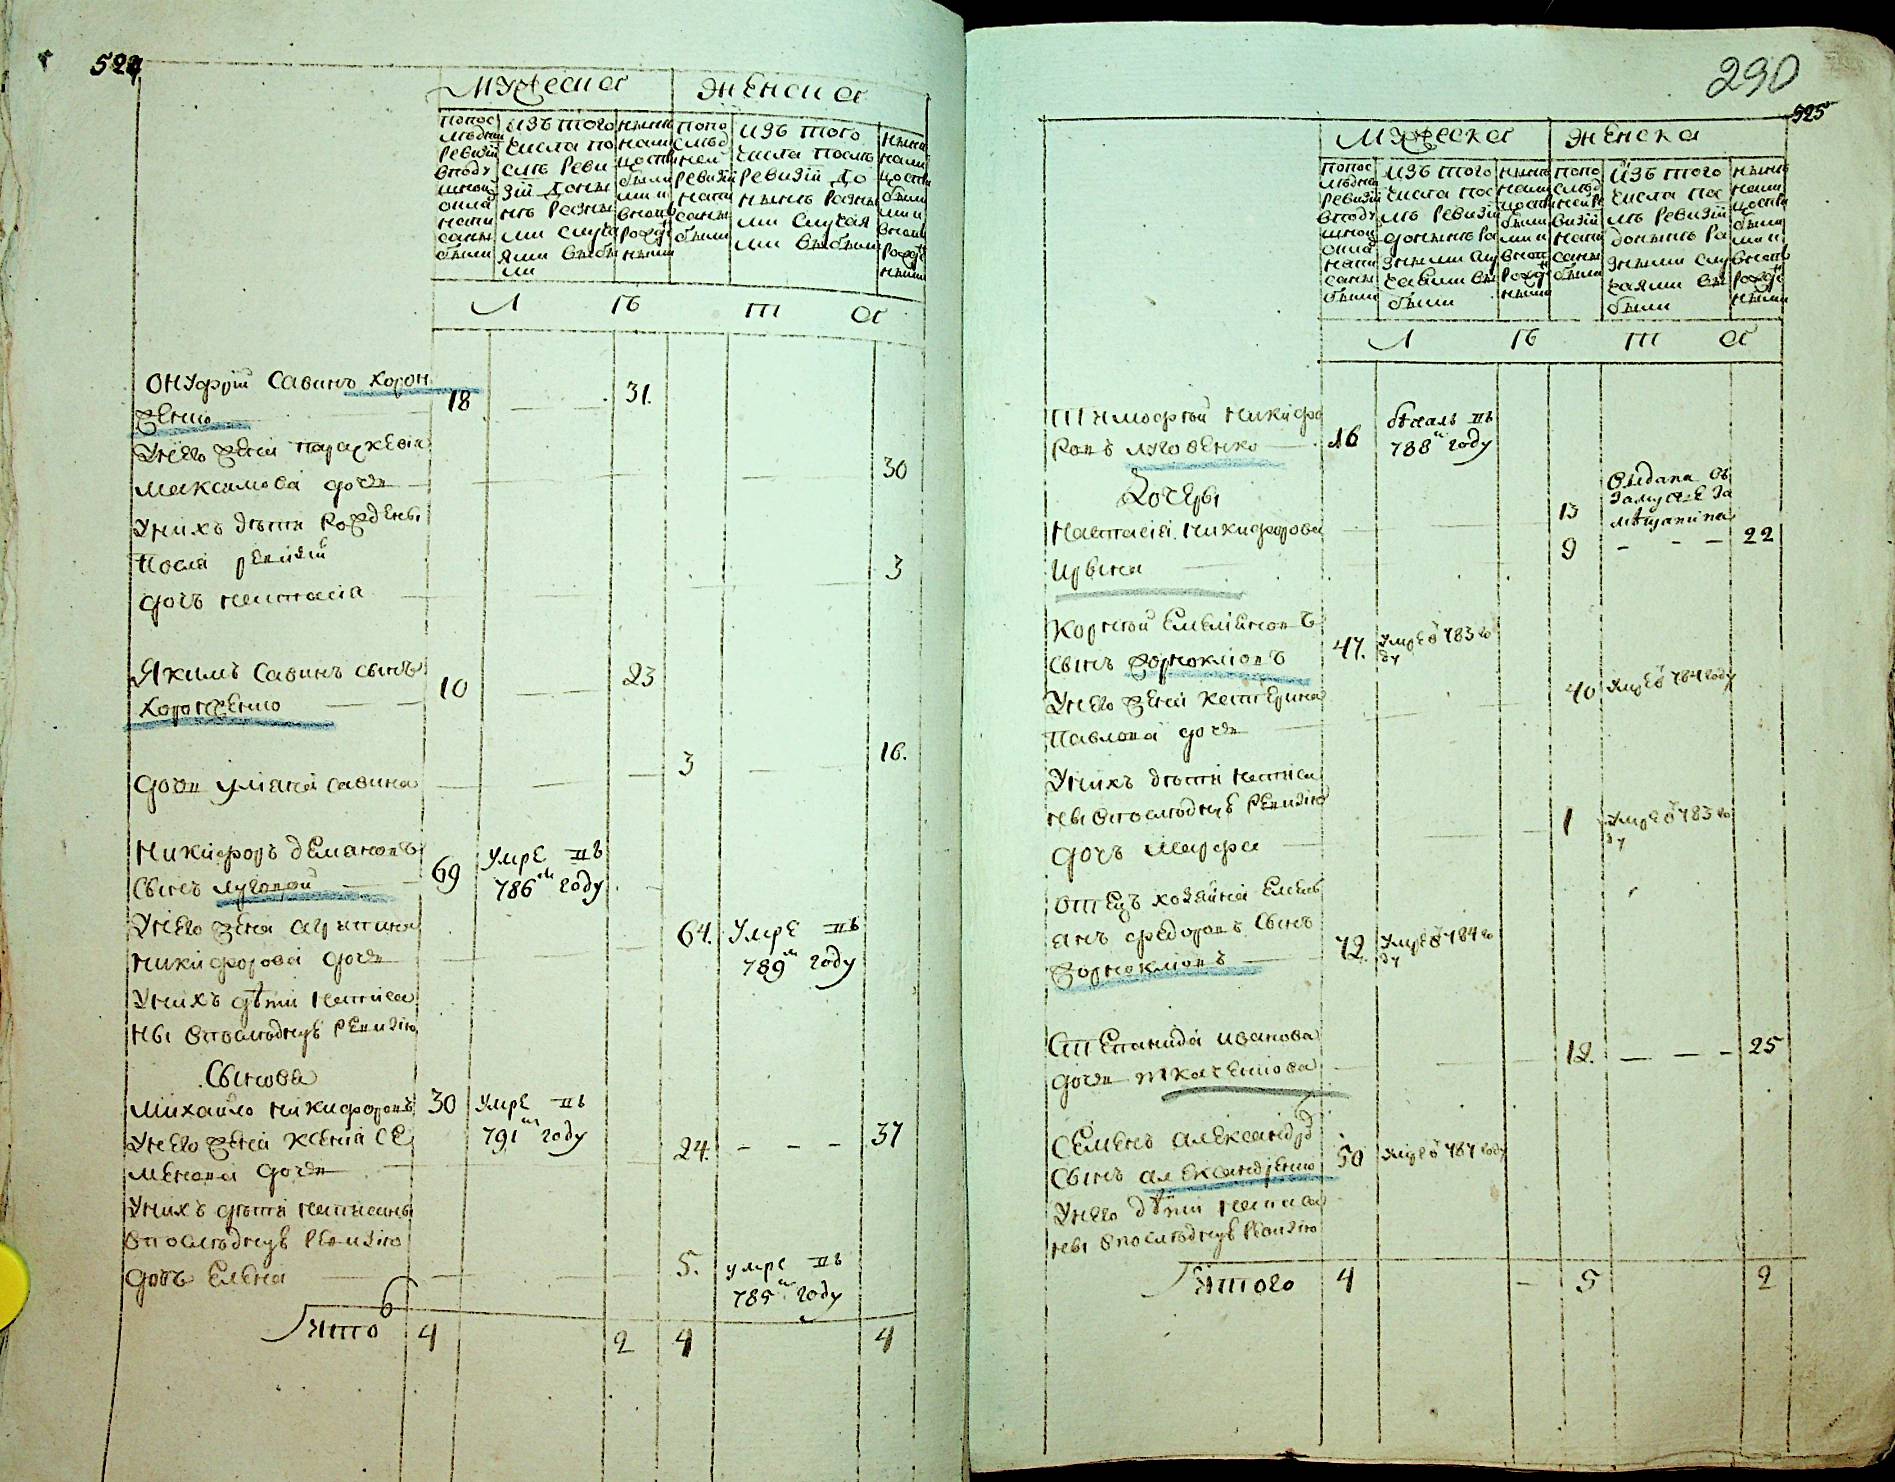 524
Мужеска
Женска
попос
ледней
ревизіи
вподу
шной
окла
напи
саны
были
изъ того
числа по
слѣ реви
зіи доны
нѣ разны
ми случа
ями выбы
ли
нынѣ
нали
цо
были
ми и
вновь
рожде
нными
попо
след
ней
ревизіи
напи
саны
были
изъ того
числа послѣ
ревизіи до
нынѣ разны
ми случая
ми выбыли
нынѣ
нали
были
ми и
вновь
рожде
нными
Л Ѣ Т А
Онуфрій Савинъ Хорон
женко 18 — 31.
Унего жена Параскевія
Максимова дочь — — 30
Унихъ дѣти рождены
послѣ ревизіи
дочь Настасія — — 3
Якимъ Савинъ сынъ
Хоронженко — 10 — 23
дочь Уліана Савина — — 3 — 16.
Никифоръ Демяновъ
сынъ Луговой — 69 умре въ
786м году
Унего жена Агрипина
Никифорова дочь — — 64. Умре въ
789м году
Унихъ дѣти написа
ны впоследнуѣ ревизію
Сынова
Михайло Никифоровъ 30 умре въ
791м году
Унего жена Ксенія Се
менова дочь — 24. — — — 37
Унихъ дѣти написаны
впоследнуѣ ревизію
дочь Елена — — 5. умре въ
785м году
Итого 4 2 4 4
290
525
Мужеска
Женска
попос
ледней
ревизіи
вподу
шной
окла
напи
саны
были
изъ того
числа пос
лѣ ревизіи
донынѣ ра
зными слу
чаями вы
были
нынѣ
нали
были
ми и
вновь
рожде
нными
попо
след
ней ре
визіи
напи
саны
были
изъ того
числа пос
лѣ ревизіи
донынѣ ра
зными слу
чаями вы
были
нынѣ
нали
были
ми и
вновь
рожде
нными
Л Ѣ Т А
Тимофѣй Никифо
ровъ Луговенко — 16 бежалъ въ
788м году
Дочеры
Настасія Никифорова — — 13 выдана въ
замужѣ за
мѣщанина
Ирина — 9 — — — 22
Корнѣй Емеліановъ
сынъ Зорнокліовъ 47. умре в 783 го
ду
Унего жена Катерина
Павлова дочь — — 40 умре в 784 году
Унихъ дѣти написа
ны впоследнуѣ ревизію
дочь Марфа — — 1 умре в 783 го
ду
отецъ хозяина Емели
анъ Федоровъ сынъ
Зорнокліовъ — 72. умре в 784 го
ду
Степанида Иванова
дочь Ткаченкова — — 12. — — — 25
Семенъ Александр
сынъ Александренко 50 умре в 787 году
Унего дѣти написа
ны впоследнуѣ ревизію
Итого 4 — 5 2